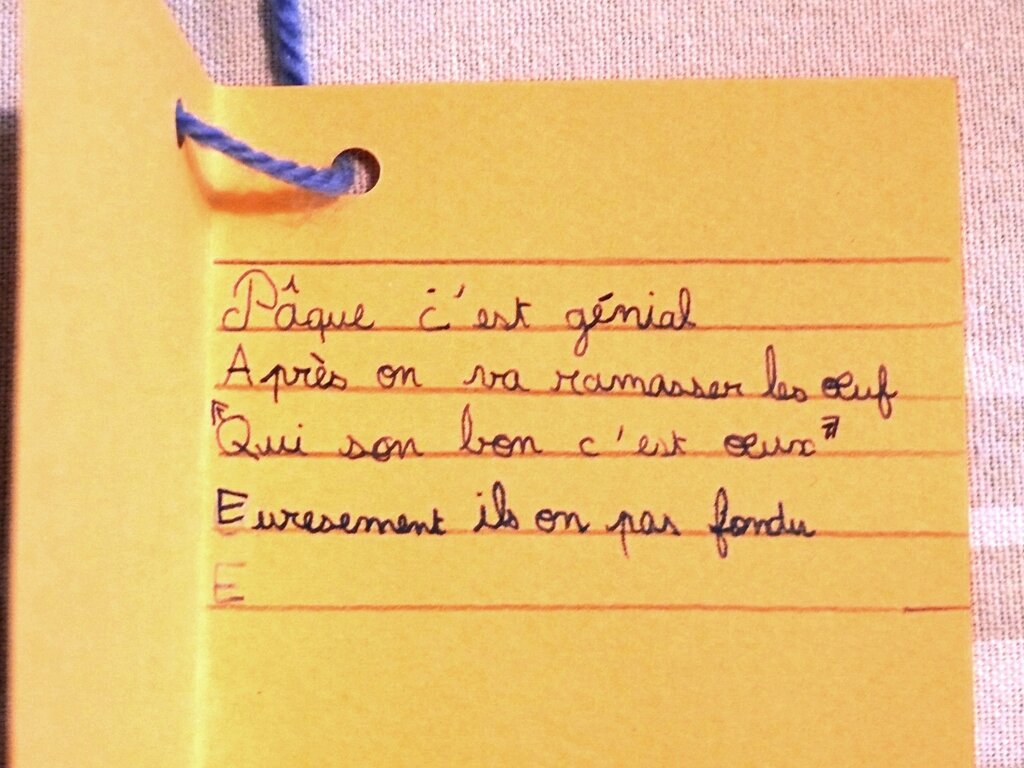 Pâque c'est génial
Après on va ramasser les œuf
"Qui son bon c'est œux"
Euresement ils on pas fondu
E